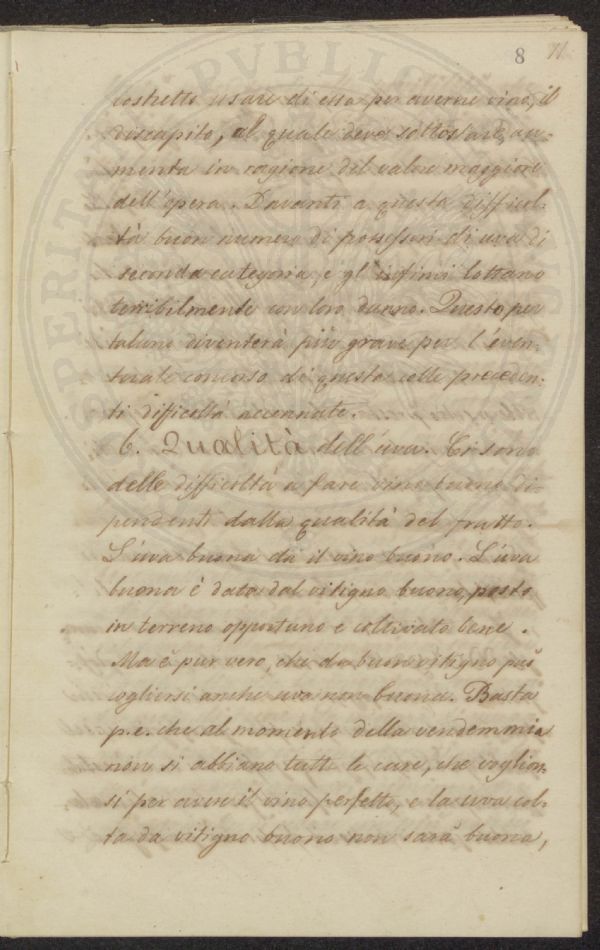 8 71
costretto usare di essa per averne vino, il
discapito, al quale deve sottostare, au=
menta in ragione del valore maggiore
dell'opera. Davanti a questa difficol=
tà buon numero di possessori di uva di
seconda categoria, e gl'infimi lottano
terribilmente con loro danno. Questo per
taluno diventerà più grave per l'even=
tuale concorso di questa colle preceden=
ti difficoltà accennate.
6. Qualità dell'uva. Ci sono
delle difficoltà a fare vino buono di=
pendenti dalla qualità del frutto.
L'uva buona dà il vino buono. L'uva
buona è data dal vitigno buono, posto
in terreno opportuno e coltivato bene.
Ma è pur vero, che da buon vitigno può
cogliersi anche uva non buona. Basta
p.e. che al momento della vendemmia
non si abbiano tutte le cure, che voglion=
si per avere il vino perfetto, e la uva col=
ta da vitigno buono non sarà buona,
PERITA PVBLIC